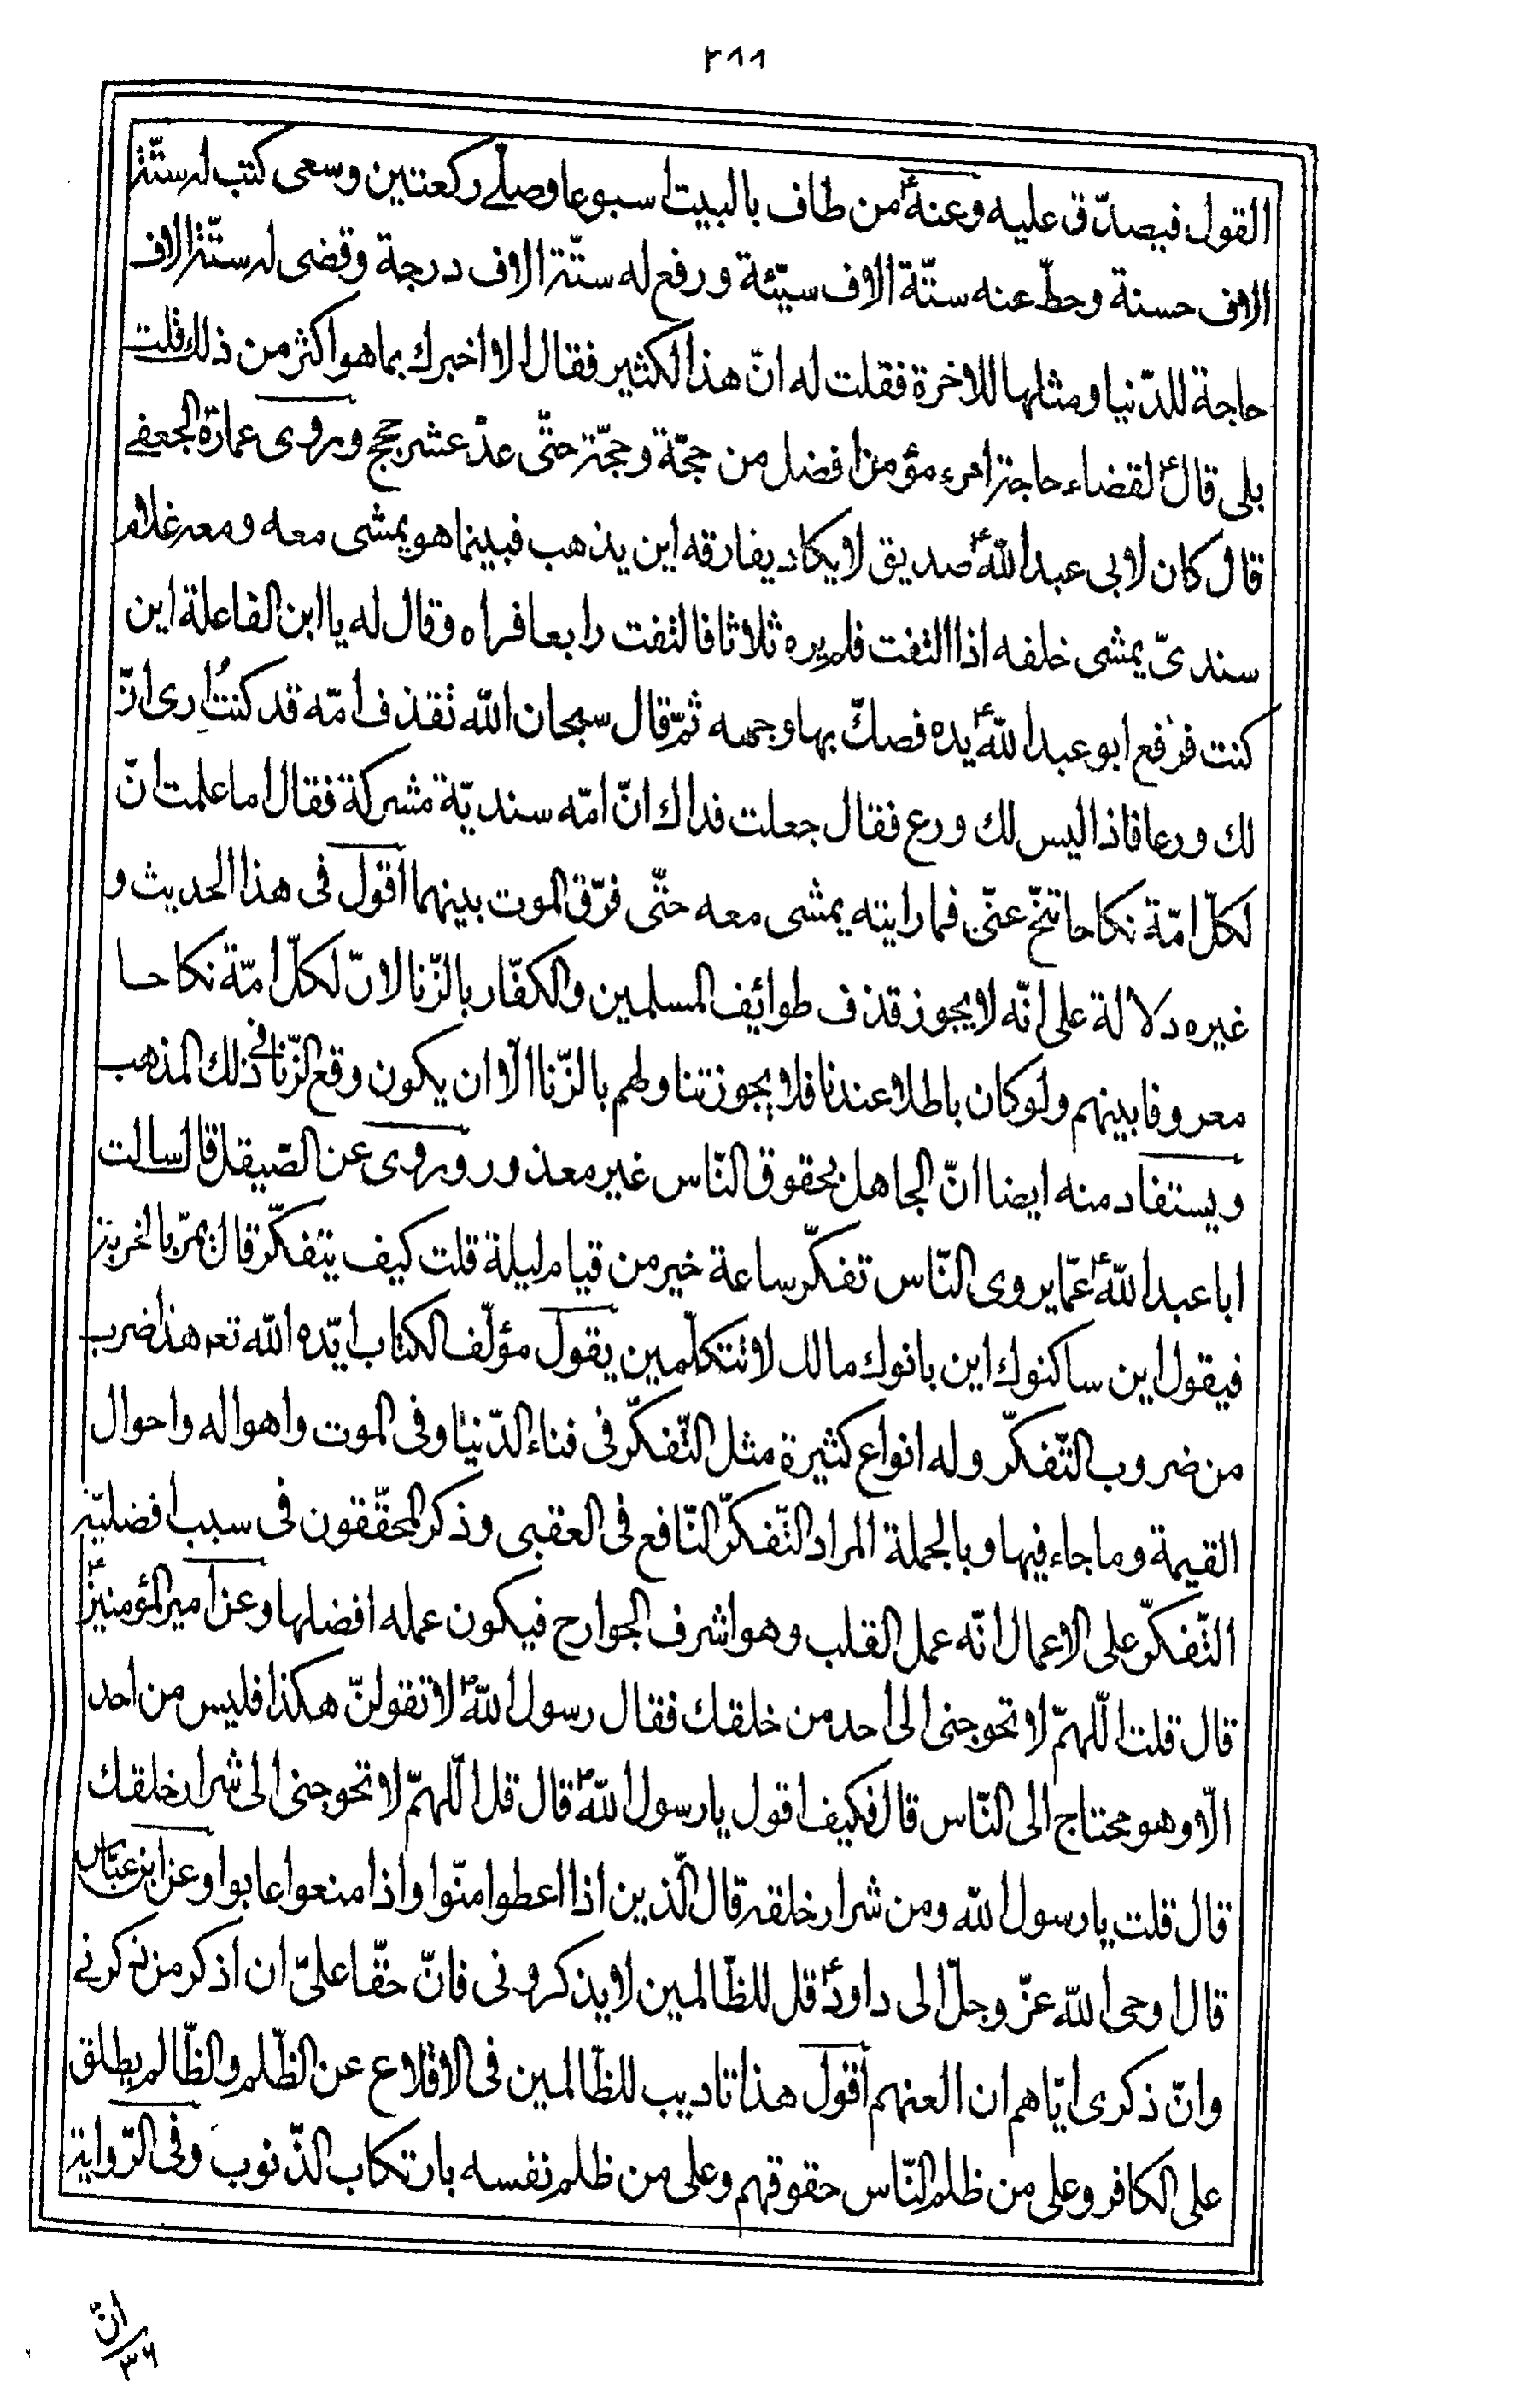 ٢١١
القول فيصدّق عليه وعنهؑ من طاف بالبيت اسبوعا وصلّے ركعتين وسعى كتب له ستّة
الاف حسنة وحطّ عنه ستّة الاف سيّئة ورفع له ستّة الاف درجة وقضى له ستّة الاف
حاجة للدّنيا ومثلها للاخرة فقلت له انّ هذا لكثير فقال الا اخبرك بما هو اكثر من ذلك قلت
بلى قالؑ لقضاء حاجة امرء مؤمن افضل من حجّة وحجّة حتّى عدّ عشر حجج وروى عمارة الجعفے
قال كان لابى عبد اللّهؑ صديق لا يكاد يفارقه اين يذهب فبينما هو يمشى معه ومعه غلام
سندىّ يمشى خلفه اذا التفت فلم يره ثلاثا فالتفت رابعا فراه وقال له يا ابن الفاعلة اين
كنت فرفع ابو عبد اللّهؑ يده فصكّ بها وجهه ثمّ قال سبحان اللّه تقذف امّه قد كنتُ ارى انّ
لك ورعا فاذا ليس لك ورع فقال جعلت فداك انّ امّه سنديّة مشركة فقال اما علمت انّ
لكلّ امّة نكاحا تنحّ عنّى فما رايته يمشى معه حتّى فرّق الموت بينهما اقول فى هذا الحديث و
غيره دلالة على انّه لا يجوز قذف طوائف المسلمين والكفّار بالزّنا لانّ لكلّ امّة نكاحا
معروفا بينهم ولو كان باطلا عندنا فلا يجوز تناولهم بالزّنا الّا ان يكون وقع الزّنا فى ذلك المذهب
ويستفاد منه ايضا انّ الجاهل بحقوق النّاس غير معذور وروى عن الصّيقل قال سالت
ابا عبد اللّهؑ عمّا يروى النّاس تفكّر ساعة خير من قيام ليلة قلت كيف يتفكّر قال يمرّ بالخربة
فيقول اين ساكنوك اين بانوك مالك لا تتكلّمين يقول مؤلّف الكتاب ايّده اللّه تعه هذا ضرب
من ضروب التّفكّر وله انواع كثيرة مثل التّفكّر فى فناء الدّنيا وفى الموت واهواله واحوال
القيمة وما جاء فيها وبالجملة المراد التّفكّر النّافع فى العقبى وذكر المحقّقون فى سبب افضليّة
التّفكّر على الاعمال انّه عمل القلب وهو اشرف الجوارح فيكون عمله افضلها وعن امير المؤمنينؑ
قال قلت اللّهمّ لا تحوجنى الى احد من خلقك فقال رسول اللّهؐ لا تقولنّ هكذا فليس من احد
الّا وهو محتاج الى النّاس قال فكيف اقول يا رسول اللّهؐ قال قل اللّهمّ لا تحوجنى الى شرار خلقك
قال قلت يا رسول اللّه ومن شرار خلقه قال الّذين اذا اعطوا منّوا واذا منعوا عابوا وعن ابن عبّاس
قال اوحى اللّه عزّ وجلّ الى داودؑ قل للظّالمين لا يذكرونى فانّ حقّا علىّ ان اذكر من ذكرنے
وانّ ذكرى ايّاهم ان العنهم اقول هذا تاديب للظّالمين فى الاقلاع عن الظّلم والظّالم يطلق
على الكافر وعلى من ظلم النّاس حقوقهم وعلى من ظلم نفسه بارتكاب الذّنوب وفى الرّواية
انّ
٣٦